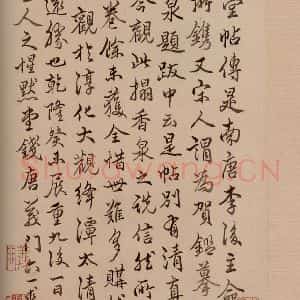 堂帖傳是南唐李後主命
所鐫又宋人謂為賀鑑摹
泉題跋中云是帖別有清真
今觀此搨香泉之說信然所
卷餘未獲全惜世難多購
觀於淳化大觀絳潭太清
遠勝也乾隆癸未展重九後一日
人之惺默堂鐙唐義門